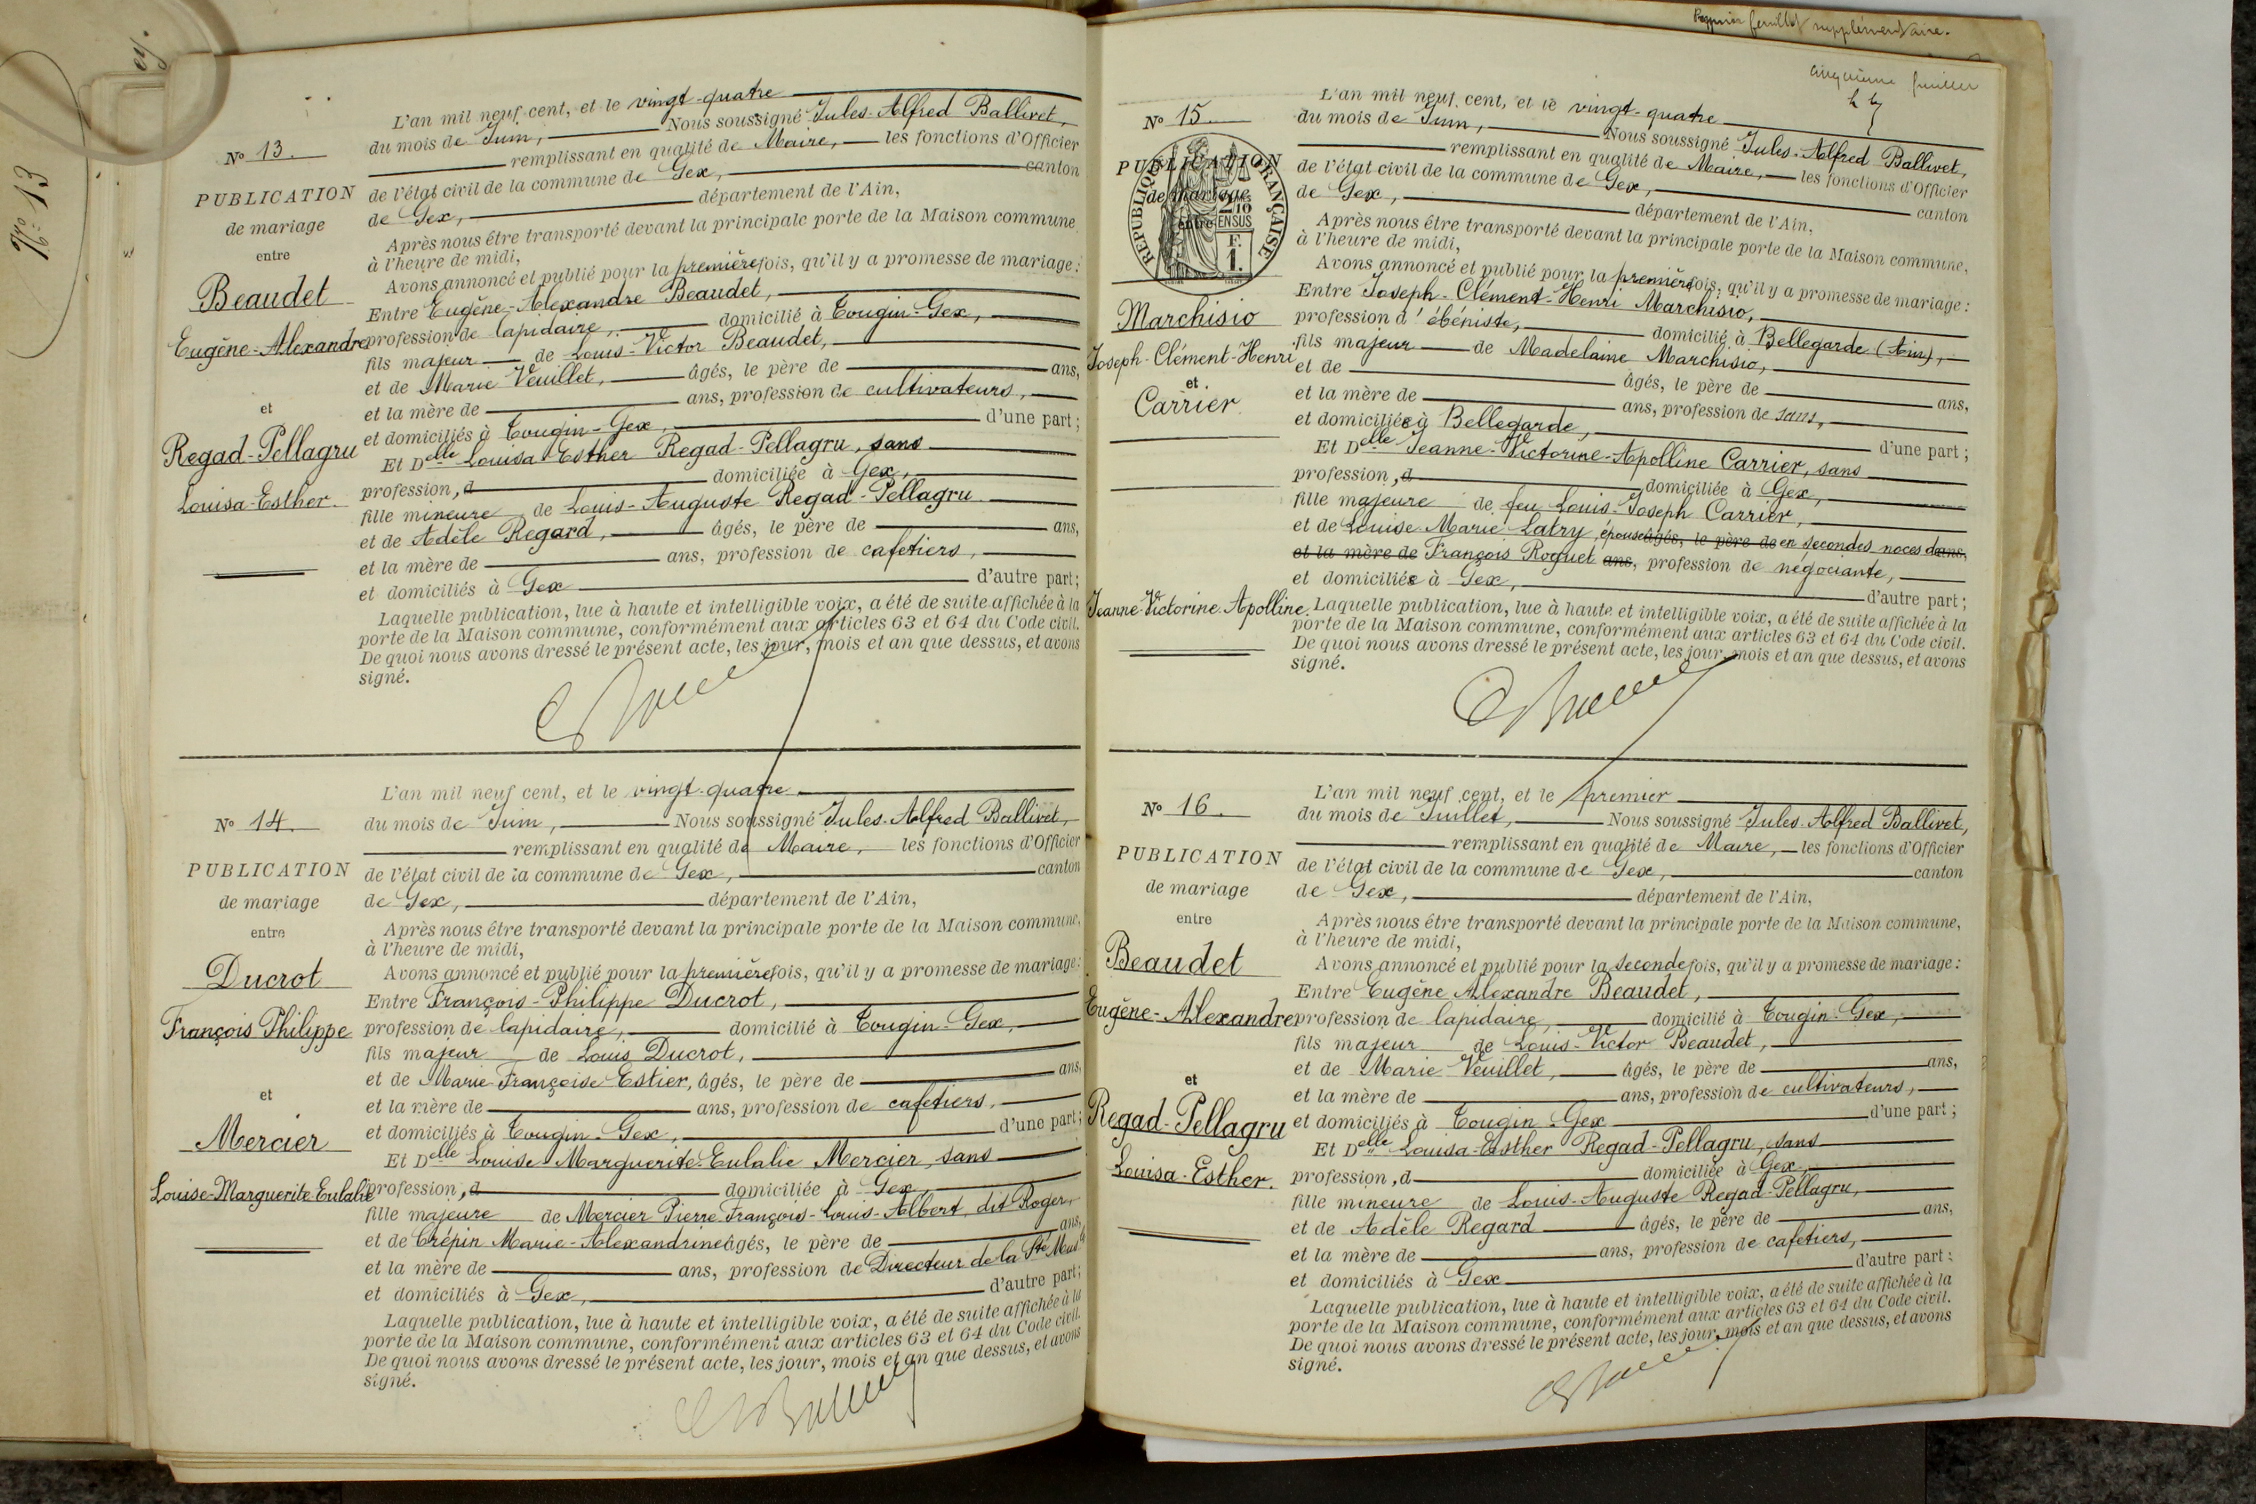 Nro 13
ey.
N° 13.
PUBLICATION
de mariage
entre
Beaudet
Eugène-Alexandre
et
Regad-Pellagru
Louisa-Esther.
L'an mil neuf cent, et le vingt-quatre
du mois de Juin, Nous soussigné Jules-Alfred Ballivet,
remplissant en qualité de Maire, les fonctions d'Officier
de l'état civil de la commune de Gex, canton
de Gex, département de l'Ain,
Après nous être transporté devant la principale porte de la Maison commune,
à l'heure de midi,
Avons annoncé et publié pour la première fois, qu'il y a promesse de mariage:
Entre Eugène-Alexandre Beaudet,
profession de lapidaire, domicilié à Tougin-Gex,
fils majeur de Louis-Victor Beaudet,
et de Marie Veuillet, âgés, le père de ans,
et la mère de ans, profession de cultivateurs,
et domiciliés à Tougin-Gex, d'une part;
Et Delle Louisa Esther Regad-Pellagru, sans
profession, d domiciliée à Gex,
fille mineure de Louis-Auguste Regad-Pellagru
et de Adèle Regard, âgés, le père de ans,
et la mère de ans, profession de cafetiers,
et domiciliés à Gex d'autre part;
Laquelle publication, lue à haute et intelligible voix, a été de suite affichée à la
porte de la Maison commune, conformément aux articles 63 et 64 du Code civil.
De quoi nous avons dressé le présent acte, les jour, mois et an que dessus, et avons
signé.
N° 14.
PUBLICATION
de mariage
entre
Ducrot
François Philippe
et
Mercier
Louise-Marguerite-Eulalie
L'an mil neuf cent, et le vingt-quatre
du mois de Juin, Nous soussigné Jules-Alfred Ballivet,
remplissant en qualité de Maire, les fonctions d'Officier
de l'état civil de la commune de Gex, canton
de Gex, département de l'Ain,
Après nous être transporté devant la principale porte de la Maison commune,
à l'heure de midi,
Avons annoncé et publié pour la première fois, qu'il y a promesse de mariage:
Entre François-Philippe Ducrot,
profession de lapidaire, domicilié à Tougin-Gex,
fils majeur de Louis Ducrot,
et de Marie Françoise Estier, âgés, le père de ans,
et la mère de ans, profession de cafetiers,
et domiciliés à Tougin-Gex, d'une part;
Et Delle Louise Marguerite-Eulalie Mercier, sans
profession, d domiciliée à Gex,
fille majeure de Mercier Pierre François-Louis-Albert, dit Roger,
et de Crépin Marie-Alexandrine âgés, le père de ans,
et la mère de ans, profession de Directeur de la Sté Musle
et domiciliés à Gex, d'autre part;
Laquelle publication, lue à haute et intelligible voix, a été de suite affichée à la
porte de la Maison commune, conformément aux articles 63 et 64 du Code civil.
De quoi nous avons dressé le présent acte, les jour, mois et an que dessus, et avons
signé.
Premier feuillet supplémentaire.
cinquième feuillet
N° 15.
PUBLICATION
de mariage
entre
RÉPUBLIQUE FRANÇAISE
2/10
EN SUS
F.
1.
Marchisio
Joseph-Clément-Henri
et
Carrier
Jeanne-Victorine-Apolline.
L'an mil neuf cent, et le vingt-quatre
du mois de Juin, Nous soussigné Jules-Alfred Ballivet,
remplissant en qualité de Maire, les fonctions d'Officier
de l'état civil de la commune de Gex, canton
de Gex, département de l'Ain,
Après nous être transporté devant la principale porte de la Maison commune,
à l'heure de midi,
Avons annoncé et publié pour la première fois, qu'il y a promesse de mariage:
Entre Joseph-Clément-Henri Marchisio,
profession d'ébéniste, domicilié à Bellegarde (Ain),
fils majeur de Madelaine Marchisio,
et de âgés, le père de ans,
et la mère de ans, profession de sans,
et domiciliée à Bellegarde, d'une part;
Et Delle Jeanne-Victorine-Apolline Carrier, sans
profession, d domiciliée à Gex,
fille majeure de feu Louis-Joseph Carrier,
et de Louise Marie Latry, épouse âgés, le père de en secondes noces de ans,
et la mère de François Roguet ans, profession de négociante,
et domiciliée à Gex, d'autre part;
Laquelle publication, lue à haute et intelligible voix, a été de suite affichée à la
porte de la Maison commune, conformément aux articles 63 et 64 du Code civil.
De quoi nous avons dressé le présent acte, les jour, mois et an que dessus, et avons
signé.
N° 16.
PUBLICATION
de mariage
entre
Beaudet
Eugène-Alexandre
et
Regad-Pellagru
Louisa-Esther.
L'an mil neuf cent, et le premier
du mois de Juillet, Nous soussigné Jules-Alfred Ballivet,
remplissant en qualité de Maire, les fonctions d'Officier
de l'état civil de la commune de Gex, canton
de Gex, département de l'Ain,
Après nous être transporté devant la principale porte de la Maison commune,
à l'heure de midi,
Avons annoncé et publié pour la seconde fois, qu'il y a promesse de mariage:
Entre Eugène Alexandre Beaudet,
profession de lapidaire, domicilié à Tougin-Gex,
fils majeur de Louis-Victor Beaudet,
et de Marie Veuillet, âgés, le père de ans,
et la mère de ans, profession de cultivateurs,
et domiciliés à Tougin-Gex d'une part;
Et Delle Louisa-Esther Regad-Pellagru, sans
profession, d domiciliée à Gex,
fille mineure de Louis-Auguste Regad-Pellagru,
et de Adèle Regard âgés, le père de ans,
et la mère de ans, profession de cafetiers,
et domiciliés à Gex d'autre part;
Laquelle publication, lue à haute et intelligible voix, a été de suite affichée à la
porte de la Maison commune, conformément aux articles 63 et 64 du Code civil.
De quoi nous avons dressé le présent acte, les jour, mois et an que dessus, et avons
signé.